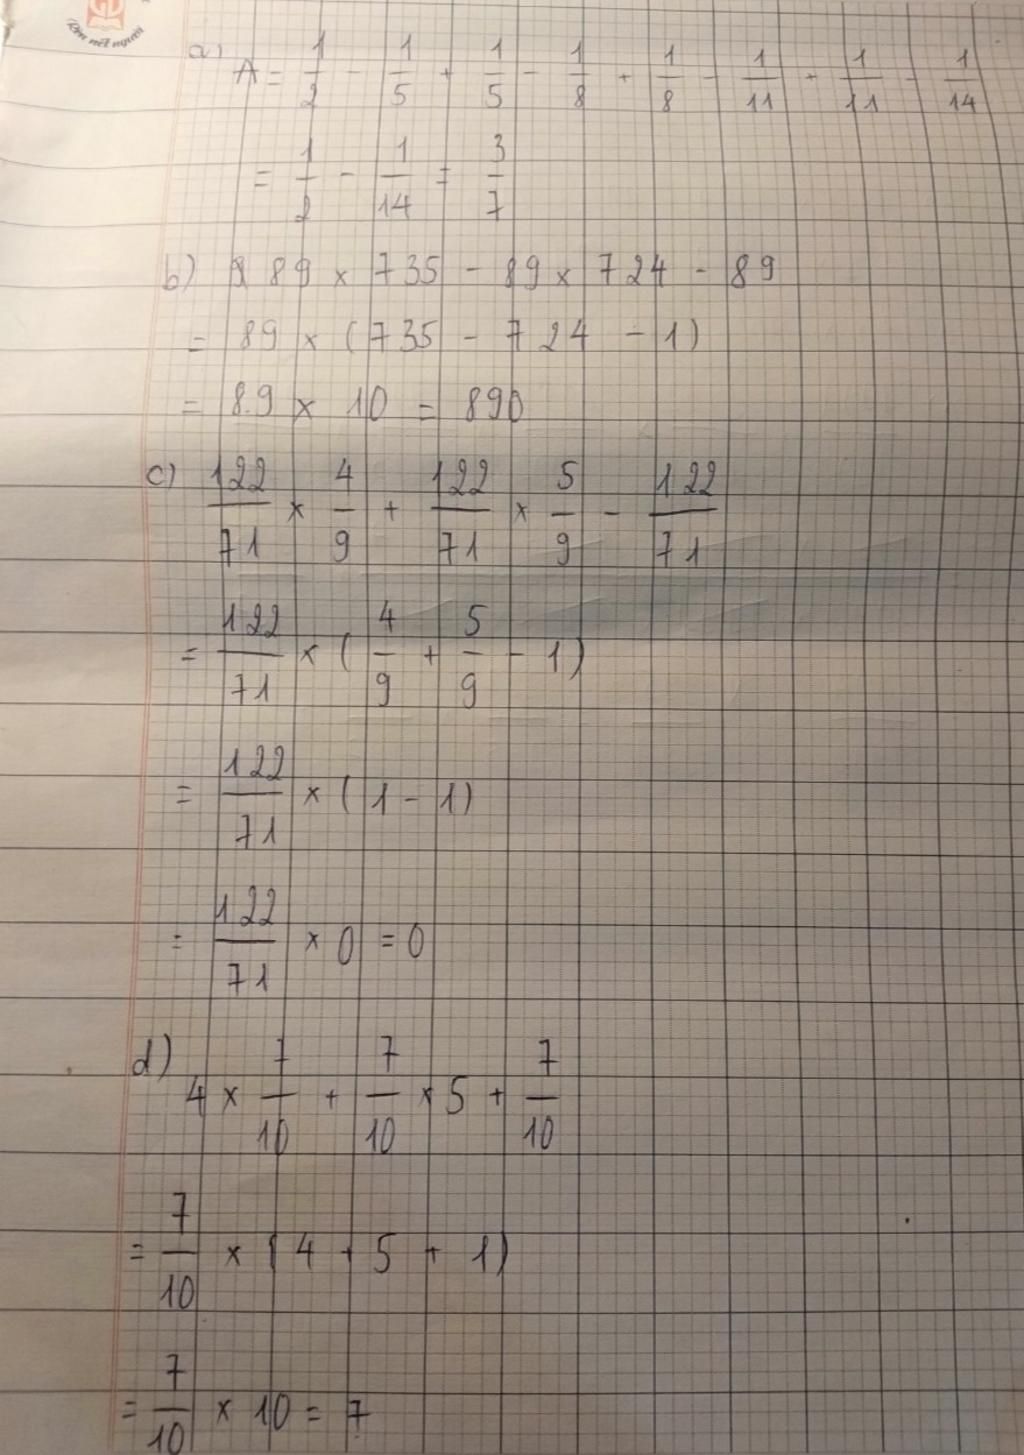 Rèn nét người
a) A = 1/2 - 1/5 + 1/5 - 1/8 + 1/8 - 1/11 + 1/11 - 1/14
= 1/2 - 1/14 = 3/7
b) 89 × 735 - 89 × 724 - 89
= 89 × (735 - 724 - 1)
= 89 × 10 = 890
c) 122/71 × 4/9 + 122/71 × 5/9 - 122/71
= 122/71 × (4/9 + 5/9 - 1)
= 122/71 × (1 - 1)
= 122/71 × 0 = 0
d) 4 × 7/10 + 7/10 × 5 + 7/10
= 7/10 × (4 + 5 + 1)
= 7/10 × 10 = 7